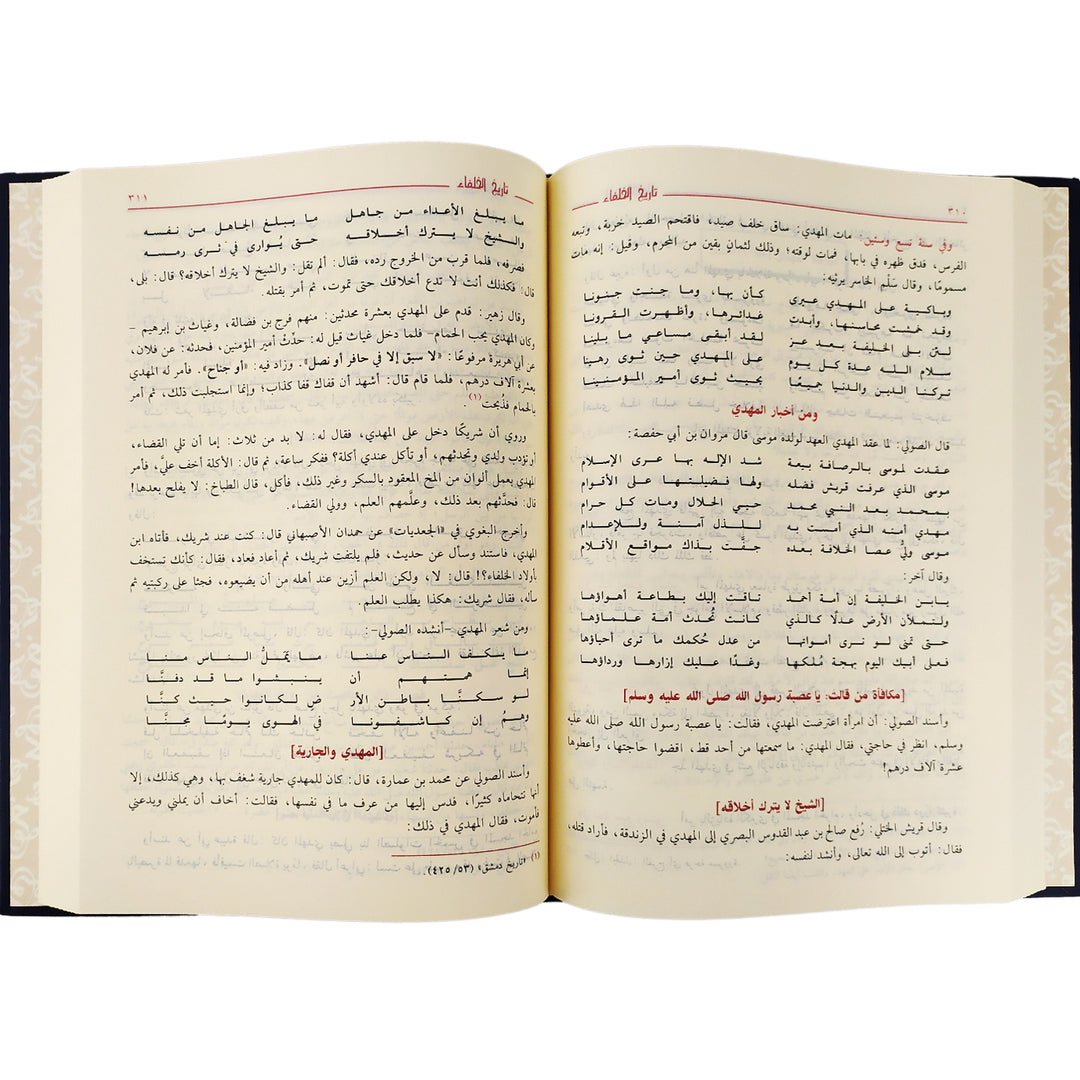 تاريخ الخلفاء
٣١٠
وفي سنة تسع وستين: مات المهدي: ساق خلف صيد، فاقتحم الصيد خربة، وتبعه
الفرس، فدق ظهره في بابها، فمات لوقته؛ وذلك لثمانٍ بقين من المحرم، وقيل: إنه مات
مسمومًا، وقال سَلْم الخاسر يرثيه:
وباكية على المهدي عبرى كأن بها، وما جنت جنونا
وقد خمشت محاسنها، وأبدت غدائرها، وأظهرت القرونا
لئن بلى الخليفة بعد عز لقد أبقى مساعي ما بلينا
سلام الله عدة كل يوم على المهدي حين ثوى رهينا
تركنا الدين والدنيا جميعًا بحيث ثوى أمير المؤمنينا
ومن أخبار المهدي
قال الصولي: لما عقد المهدي العهد لولده موسى قال مروان بن أبي حفصة:
عقدت لموسى بالرصافة بيعة شد الإله بها عرى الإسلام
موسى الذي عرفت قريش فضله ولها فضيلتها على الأقوام
بمحمد بعد النبي محمد حيي الحلال ومات كل حرام
مهدي أمته الذي أمست به للذل آمنة وللإعدام
موسى وليُّ عصا الخلافة بعده جفَّت بذاك مواقع الأقلام
وقال آخر:
يابن الخليفة إن أمة أحمد تاقت إليك بطاعة أهواؤها
ولتملأن الأرض عدلًا كالذي كانت تُحدث أمة علماؤها
حتى تمنى لو ترى أمواتها من عدل حُكمك ما ترى أحياؤها
فعلى أبيك اليوم بهجة مُلكها وغدًا عليك إزارها ورداؤها
[مكافأة من قالت: يا عصبة رسول الله صلى الله عليه وسلم]
وأسند الصولي: أن امرأة اعترضت المهدي، فقالت: يا عصبة رسول الله صلى الله عليه
وسلم، انظر في حاجتي، فقال المهدي: ما سمعتها من أحد قط، اقضوا حاجتها، وأعطوها
عشرة آلاف درهم!
[الشيخ لا يترك أخلاقه]
وقال قريش الختلي: رُفع صالح بن عبد القدوس البصري إلى المهدي في الزندقة، فأراد قتله،
فقال: أتوب إلى الله تعالى، وأنشد لنفسه:
تاريخ الخلفاء
٣١١
ما يبلغ الأعداء من جاهل ما يبلغ الجاهل من نفسه
والشيخ لا يترك أخلاقه حتى يُوارى في ثرى رمسه
فصرفه، فلما قرب من الخروج رده، فقال: ألم تقل: والشيخ لا يترك أخلاقه؟ قال: بلى،
قال: فكذلك أنت لا تدع أخلاقك حتى تموت، ثم أمر بقتله.
وقال زهير: قدم على المهدي بعشرة محدثين: منهم فرج بن فضالة، وغياث بن إبرهيم –
وكان المهدي يحب الحمام– فلما دخل غياث قيل له: حدِّث أمير المؤمنين، فحدثه: عن فلان،
عن أبي هريرة مرفوعًا: «لا سبق إلا في حافر أو نصل». وزاد فيه: «أو جناح». فأمر له المهدي
بعشرة آلاف درهم، فلما قام قال: أشهد أن قفاك قفا كذاب؛ وإنما استجلبت ذلك، ثم أمر
بالحمام فذُبحت (١).
وروي أن شريكًا دخل على المهدي، فقال له: لا بد من ثلاث: إما أن تلي القضاء،
أو تؤدب ولدي وتحدثهم، أو تأكل عندي أكلة؟ ففكر ساعة، ثم قال: الأكلة أخف عليَّ، فأمر
المهدي بعمل ألوان من المخ المعقود بالسكر وغير ذلك، فأكل، قال الطباخ: لا يفلح بعدها!
قال: فحدَّثهم بعد ذلك، وعلَّمهم العلم، وولي القضاء.
وأخرج البغوي في «الجعديات» عن حمدان الأصبهاني قال: كنت عند شريك، فأتاه ابن
المهدي، فاستند وسأل عن حديث، فلم يلتفت شريك، ثم أعاد فعاد، فقال: كأنك تستخف
بأولاد الخلفاء؟! قال: لا، ولكن العلم أزين عند أهله من أن يضيعوه، فجثا على ركبتيه ثم
سأله، فقال شريك: هكذا يطلب العلم.
ومن شعر المهدي –أنشده الصولي–:
ما يكف الناس عنا ما يَمَلُّ الناس منا
إنما همتهم أن ينبشوا ما قد دفنَّا
لو سكنَّا باطن الأر ض لكانوا حيث كنَّا
وهُم إن كاشفونا في الهوى يومًا مجنَّا
[المهدي والجارية]
وأسند الصولي عن محمد بن عمارة، قال: كان للمهدي جارية شغف بها، وهي كذلك، إلا
أنها تتحاماه كثيرًا، فدس إليها من عرف ما في نفسها، فقالت: أخاف أن يملني ويدعني
فأموت، فقال المهدي في ذلك:
(١) «تاريخ دمشق» (٥٣/ ٤٢٥).